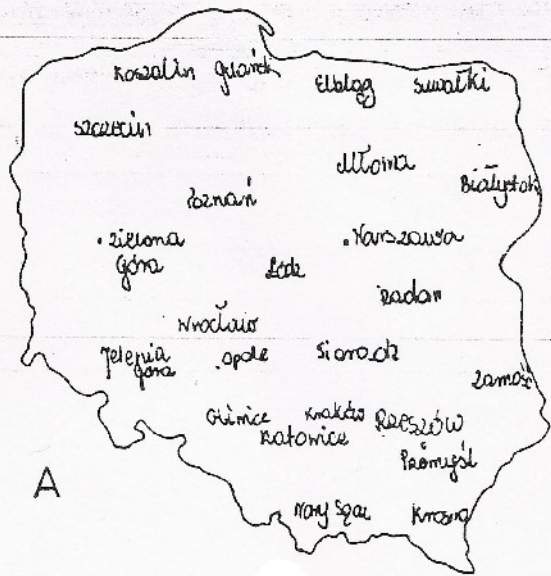 Koszalin Gdańsk
Elbląg Suwałki
Szczecin
Mława
Białystok
Poznań
Zielona
Góra
Warszawa
Łódź
Radom
Wrocław
Jelenia
Góra
Opole
Sieradz
Zamość
Gliwice Kraków RZESZÓW
Katowice
Przemyśl
Nowy Sącz Krosno
A